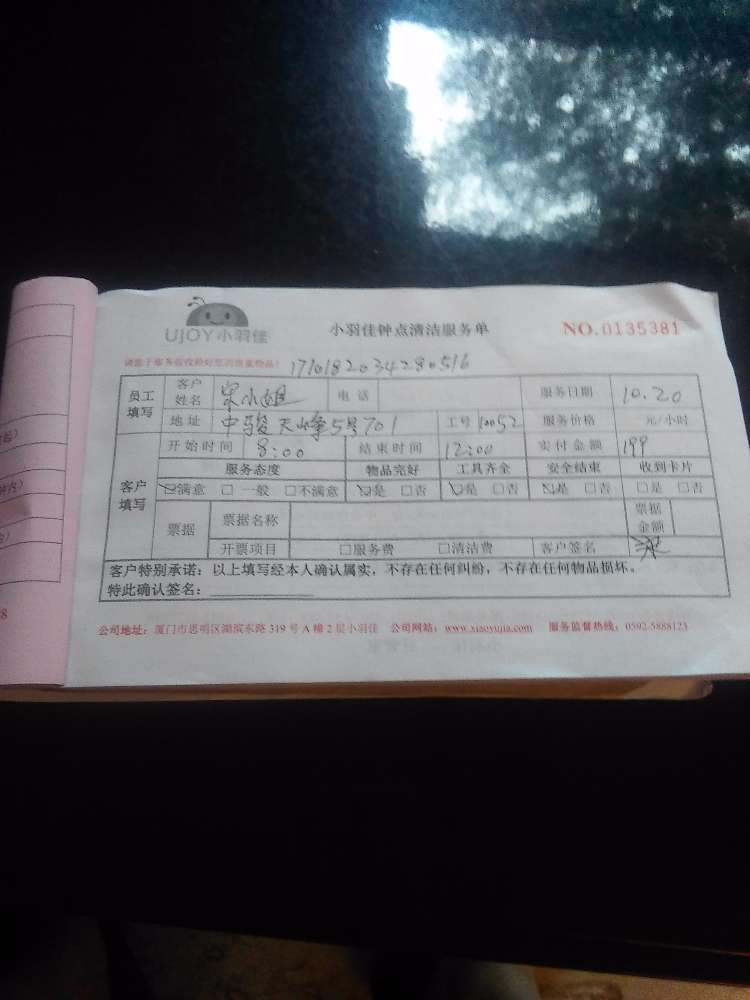 UJOY小羽佳
小羽佳钟点清洁服务单
NO.0135381
请您于服务前收检好您的贵重物品!
1710182034280516
员工填写 客户姓名 宋小姐 电话 服务日期 10.20
地址 中骏天峰5号701 工号 10052 服务价格 元/小时
客户填写 开始时间 8:00 结束时间 12:00 实付金额 199
服务态度 物品完好 工具齐全 安全结束 收到卡片
☑满意 □一般 □不满意 ☑是 □否 ☑是 □否 ☑是 □否 □是 □否
票据 票据名称 票据金额
开票项目 □服务费 □清洁费 客户签名
客户特别承诺：以上填写经本人确认属实，不存在任何纠纷，不存在任何物品损坏。
特此确认签名：
公司地址：厦门市思明区湖滨东路 319 号 A 幢 2 层小羽佳 公司网站：www.xiaoyujia.com 服务监督热线：0592-5888123